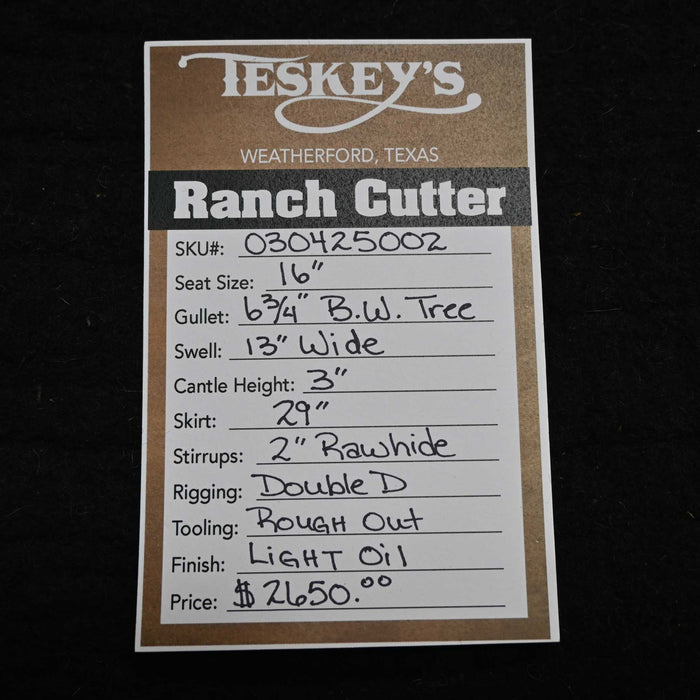 TESKEY'S
WEATHERFORD, TEXAS
Ranch Cutter
SKU#: 030425002
Seat Size: 16"
Gullet: 6 3/4" B.W. Tree
Swell: 13" Wide
Cantle Height: 3"
Skirt: 29"
Stirrups: 2" Rawhide
Rigging: Double D
Tooling: Rough Out
Finish: Light Oil
Price: $2650.00